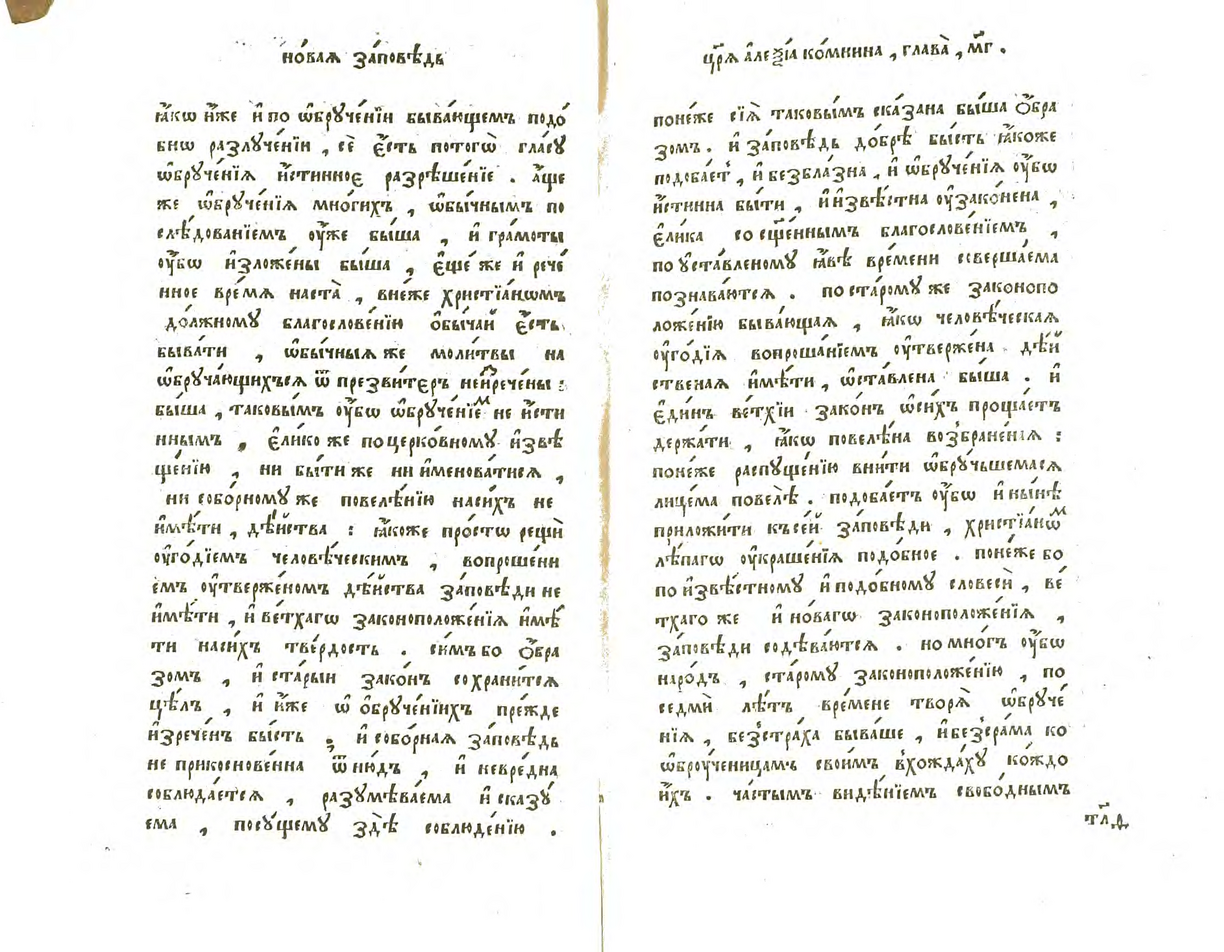 но́ваѧ за́повѣдь
ꙗ҆́кѡ и҆́же и҆ по ѡ҆брꙋче́нїи быва́ющемъ подо́
бнѡ разлꙋче́нїи , се́ є҆́сть потого̀ гла́сꙋ
ѡ҆брꙋче́нїѧ и҆́стинное разрѣше́нїе . а҆́ще
же ѡ҆брꙋче́нїѧ мно́гихъ , ѡ҆бы́чнымъ по
слѣ́дованїемъ ᲂу҆́же бы́ша , и҆ гра́моты
ᲂу҆́бѡ и҆зложе́ны бы́ша , є҆ще́ же и҆ рече́
нное вре́мѧ наста̀ , внеже христїа́нѡмъ
до́лжномꙋ благослове́нїю ѻ҆бы́чай є҆́сть
быва́ти , ѡ҆бы́чныѧ же моли́твы на
ѡ҆брꙋча́ющихъсѧ ѿ презви́теръ неи҆зрече́ны :
бы́ша , таковы́мъ ᲂу҆́бѡ ѡ҆брꙋче́нїемъ не и҆́сти
ннымъ , є҆ли́ко же поцерко́вномꙋ и҆звѣ
ще́нїю , ни бы́ти же ни и҆менова́тисѧ ,
ни собо́рномꙋ же повелѣ́нїю наси́хъ не
и҆мѣ́ти , дѣ́йства : ꙗ҆́коже про́стѡ рещѝ
ᲂу҆го́дїемъ человѣ́ческимъ , вопроше́ни
емъ ᲂу҆тверже́номъ дѣ́йства за́повѣди не
и҆мѣ́ти , и҆ ве́тхагѡ законоположе́нїѧ и҆мѣ́
ти наси́хъ тве́рдость . си́мъ бо ѻ҆́бра
зомъ , и҆ ста́рыи зако́нъ сохрани́тсѧ
цѣ́лъ , и҆ и҆́же ѡ҆ ѻ҆брꙋче́нїихъ пре́жде
и҆зрече́нъ бы́сть ; и҆ собо́рнаѧ за́повѣдь
не прикоснове́нна ѿню́дъ , и҆ невре́дна
соблюда́етсѧ , разꙋмѣва́ема и҆ сказꙋ́
ема , посꙋ́щемꙋ здѣ̀ соблюде́нїю .
цр҃ѧ̀ а҆леѯі́а комнина , глава̀ , м҃г .
поне́же сїѧ̀ таковы́мъ ска́зана бы́ша ѻ҆́бра
зомъ . и҆ за́повѣдь до́брѣ бы́сть ꙗ҆́коже
подоба́етъ , и҆ безбла́зна , и҆ ѡ҆брꙋче́нїѧ ᲂу҆́бѡ
и҆́стинна бы́ти , и҆ и҆звѣ́стна ᲂу҆зако́нена ,
є҆ли́ка со сщ҃е́ннымъ благослове́нїемъ ,
по ᲂу҆ста́вленомꙋ ꙗ҆́вѣ вре́мени соверша́ема
познава́ютсѧ . по ста́ромꙋ же законопо
ложе́нїю быва́ющаѧ , ꙗ҆́кѡ человѣ́ческаѧ
ᲂу҆го́дїѧ вопроша́нїемъ ᲂу҆тверже́на дѣ́й
ственаѧ и҆мѣ́ти , ѡ҆ста́влена бы́ша . и҆
є҆ди́нъ ве́тхїи зако́нъ ѡ҆си́хъ проща́етъ
держа́ти , ꙗ҆́кѡ повелѣ́на возбране́нїѧ :
поне́же распꙋще́нїю вни́ти ѡ҆брꙋ́чьшемасѧ
лице́ма повелѣ̀ . подоба́етъ ᲂу҆́бѡ и҆ ны́нѣ
приложи́ти къ се́й за́повѣди , христїа́нѡмъ
лѣ́пагѡ ᲂу҆краше́нїѧ подо́бное . поне́же бо
по и҆звѣ́стномꙋ и҆ подо́бномꙋ словесѝ , ве́
тхаго же и҆ но́вагѡ законоположе́нїѧ ,
за́повѣди содѣ́ваютсѧ . но мно́гъ ᲂу҆́бѡ
наро́дъ , ста́ромꙋ законоположе́нїю , по
седмѝ лѣ́тъ вре́мене творѧ̀ ѡ҆брꙋче́
нїѧ , безстра́ха быва́ше , и҆ безсра́ма ко
ѡ҆брᲂу́ченицамъ свои́мъ вхожда́хꙋ ко́ждо
и҆́хъ . ча́стымъ ви́дѣнїемъ свобо́днымъ
тл҃д